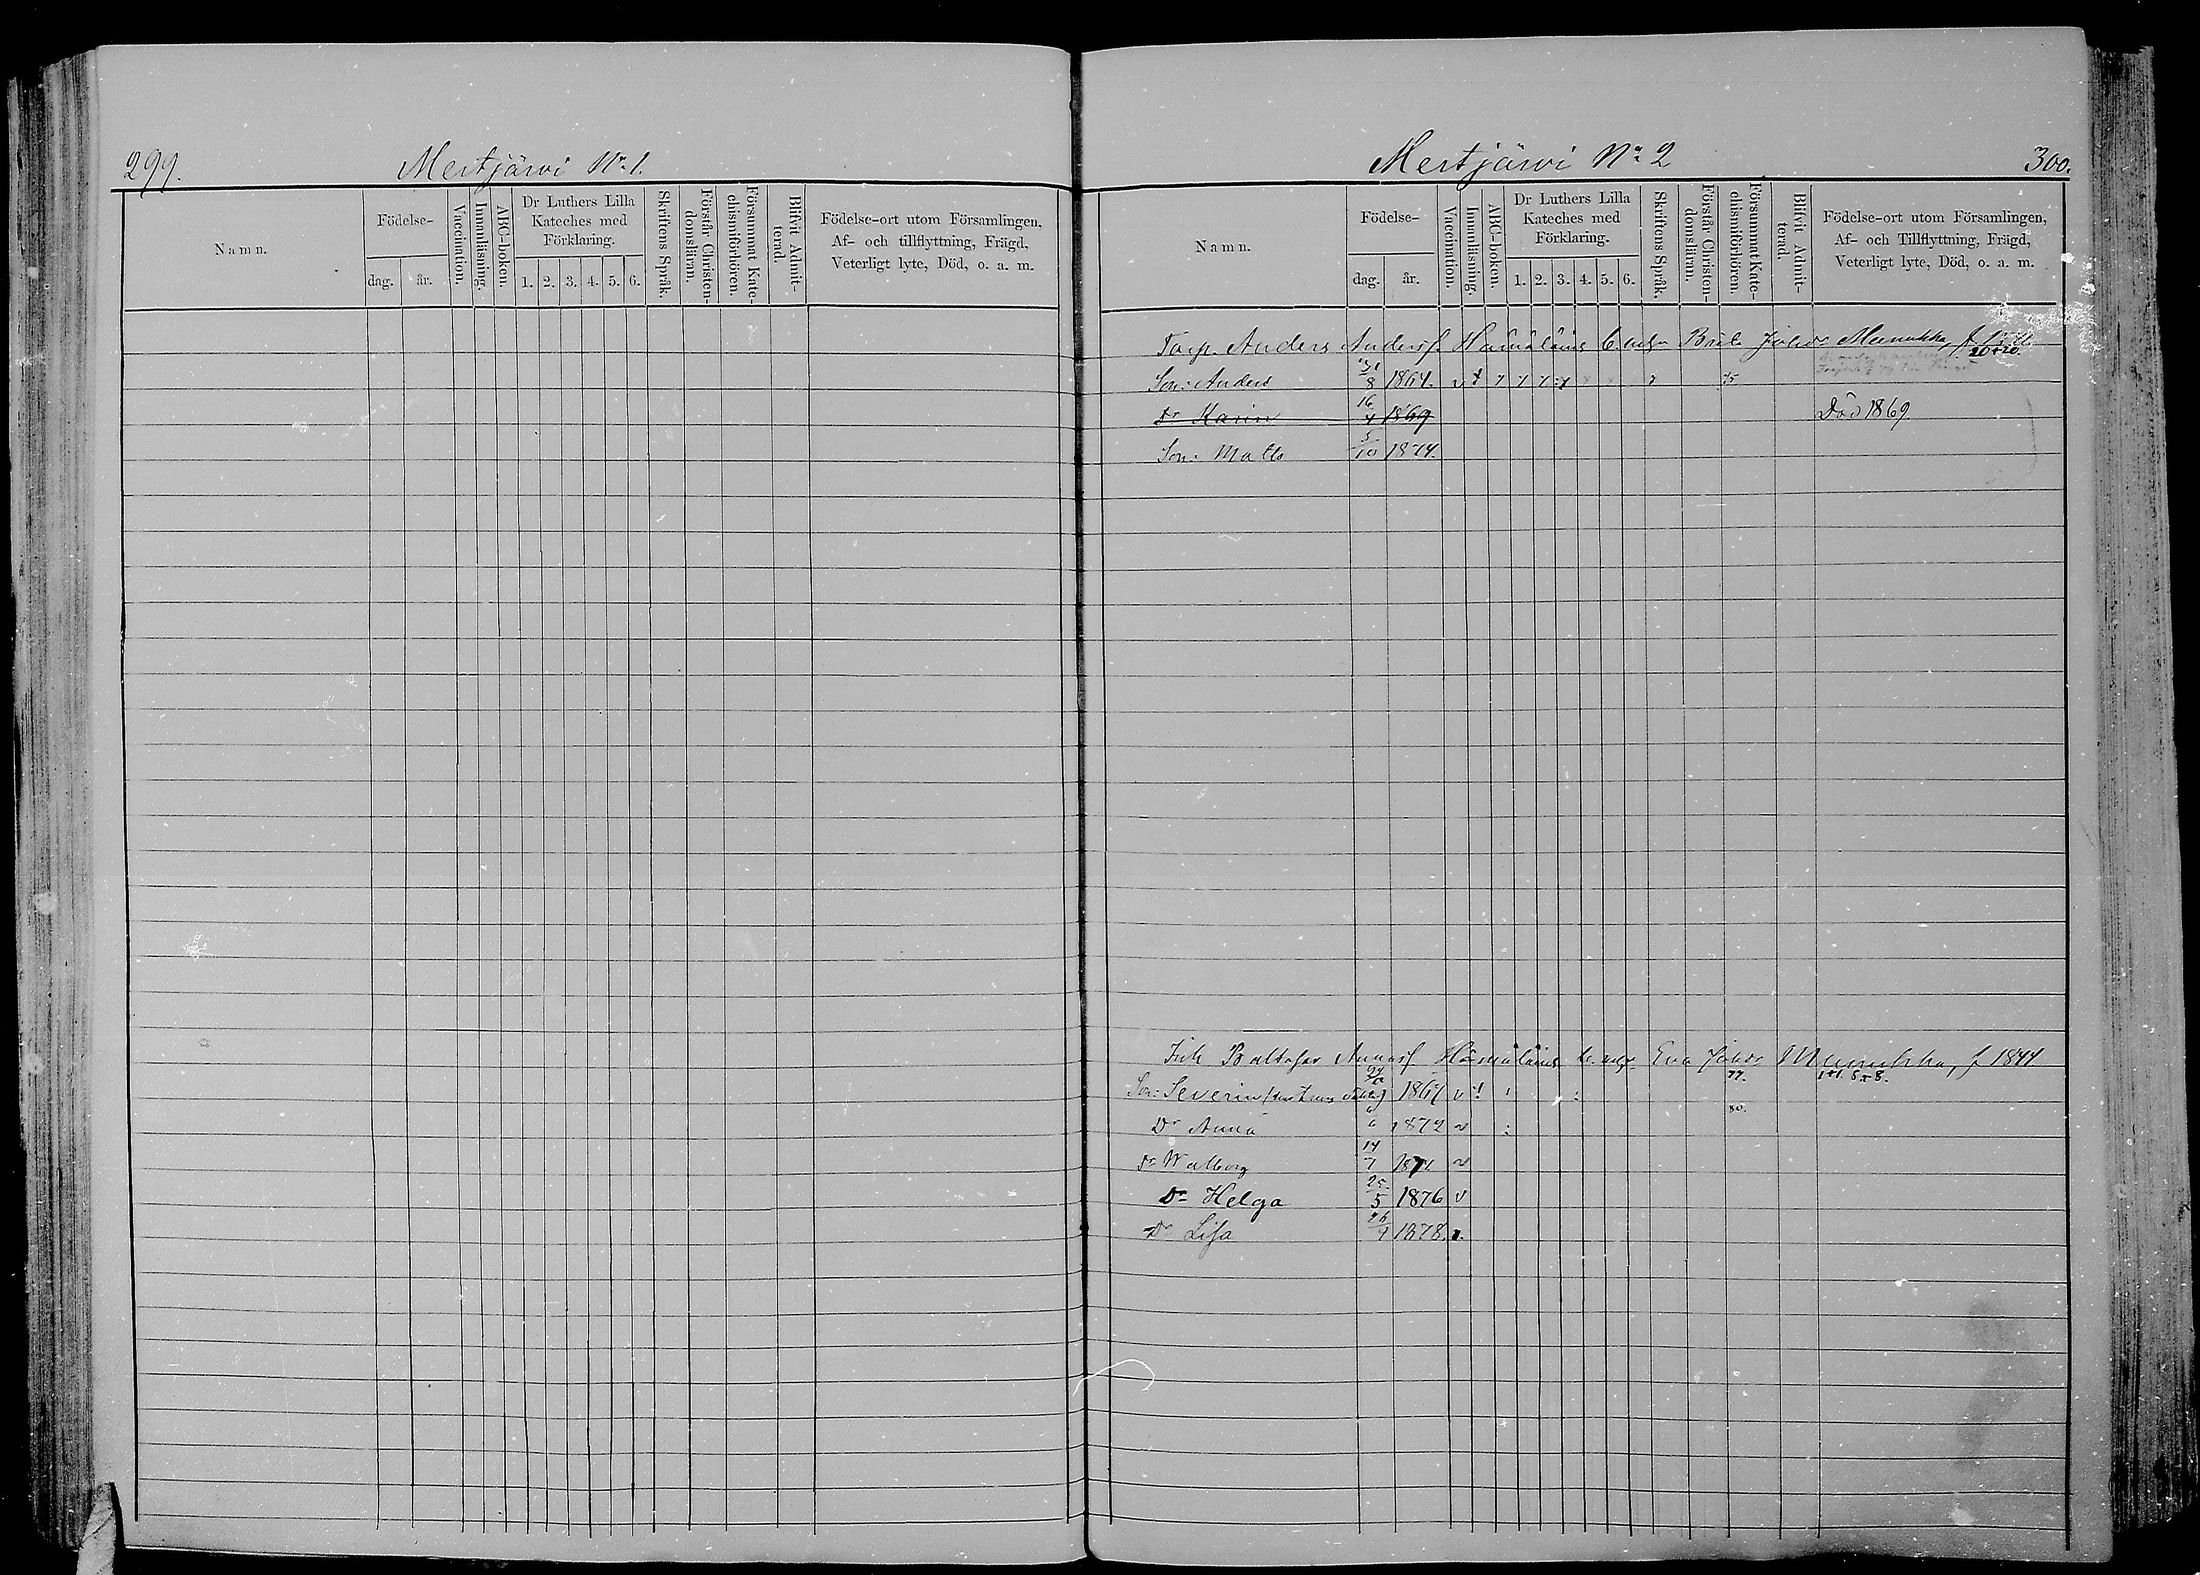 299.
Mertjärvi No 1.
Namn.
Födelse-
dag.
år.
Vaccination.
Innanläsning.
ABC-boken.
Dr Luthers Lilla
Kateches med
Förklaring.
1. 2. 3. 4. 5. 6.
Skriftens Språk.
Förstår Christen-
domsläran.
Försummat Kate-
chismiförhören.
Blifvit Admit-
terad.
Födelse-ort utom Församlingen,
Af- och tillflyttning, Frägd,
Veterligt lyte, Död, o. a. m.
Mertjärvi No 2
300.
Namn.
Födelse-
dag.
år.
Vaccination.
Innanläsning.
ABC-boken.
Dr Luthers Lilla
Kateches med
Förklaring.
1. 2. 3. 4. 5. 6.
Skriftens Språk.
Förstår Christen-
domsläran.
Försummat Kate-
chismiförhören.
Blifvit Admit-
terad.
Födelse-ort utom Församlingen,
Af- och Tillflyttning, Frägd,
Veterligt lyte, Död, o. a. m.
Torp. Anders Andersf. Hämäläins Brita Johsdr Munukka, f
Son: Anders 31/8 1864.
Dr Karin 16/4 1869 Död 1869
Son: Matts 5/10 1874.
Baltasar Hämäläins Eva Johsdr Munukka, f 1844
Son: Severin 1867 v
77.
80.
Dr Anna 1872
Dr Walborg 14/7 1874.
Dr Helga 25/5 1876 v
Dr Lisa 1878.